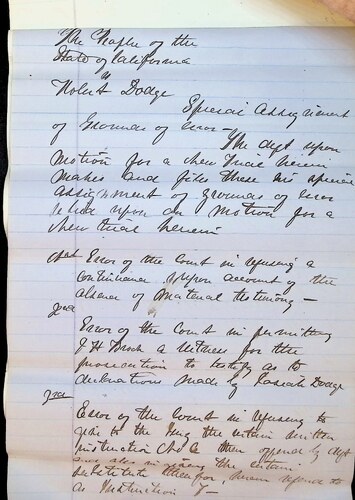 The People of the
State of California
vs
Robert Dodge
Special Assignment
of Grounds of error
The deft upon
Motion for a New Trial herein
makes and files these his special
assignment of grounds of error
relied upon on motion for a
New trial herein
1st Error of the Court in refusing a
continuance upon account of the
absence of Material testimony —
2nd
Error of the Court in permitting
J H a Witness for the
prosecution to testify as to
declarations made by Dodge
3rd
Error of the Court in refusing to
give to the Jury the certain written
instruction No 2 then by deft
and also in giving the certain
substitute therefor,
as Instruction —